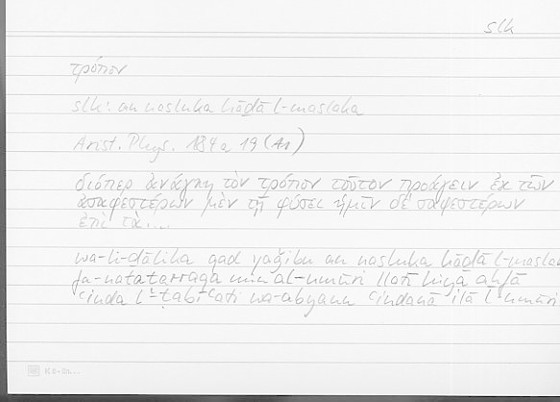 slk
τρόπον
slk: an nasluka hāḏā l-maslaka
Arist. Phys. 184 a 19 (A1)
διόπερ ἀνάγκη τὸν τρόπον τοῦτον προάγειν ἐκ τῶν
ἀσαφεστέρων μὲν τῇ φύσει ἡμῖν δὲ σαφεστέρων
ἐπὶ τὰ...
wa-li-ḏālika qad yaǧibu an nasluka hāḏā l-maslak
fa-natatarraqa min al-umūri llatī hiya aḫfā
ʿinda l-ṭabīʿati wa-abyanu ʿindanā ilā l-umūri